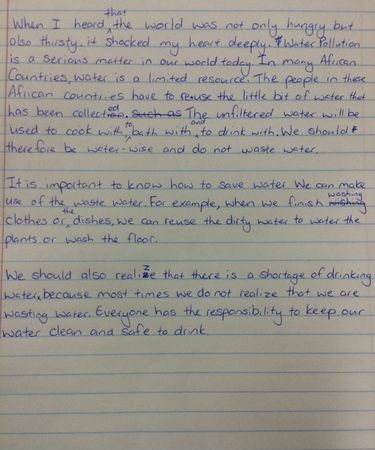 When I heard that the world was not only hungry but
also thirsty, it shocked my heart deeply. Water Pollution
is a serious matter in our world today. In many African
Countries, water is a limited resource. The people in these
African countries have to reuse the little bit of water that
has been collected. such as The unfiltered water will be
used to cook with, to bath with and to drink with. We should
therefore be water-wise and do not waste water.

It is important to know how to save water. We can make
use of the waste water. For example, when we finish washing
clothes or the dishes, we can reuse the dirty water to water the
plants or wash the floor.

We should also realize that there is a shortage of drinking
water, because most times we do not realize that we are
wasting water. Everyone has the responsibility to keep our
water clean and safe to drink